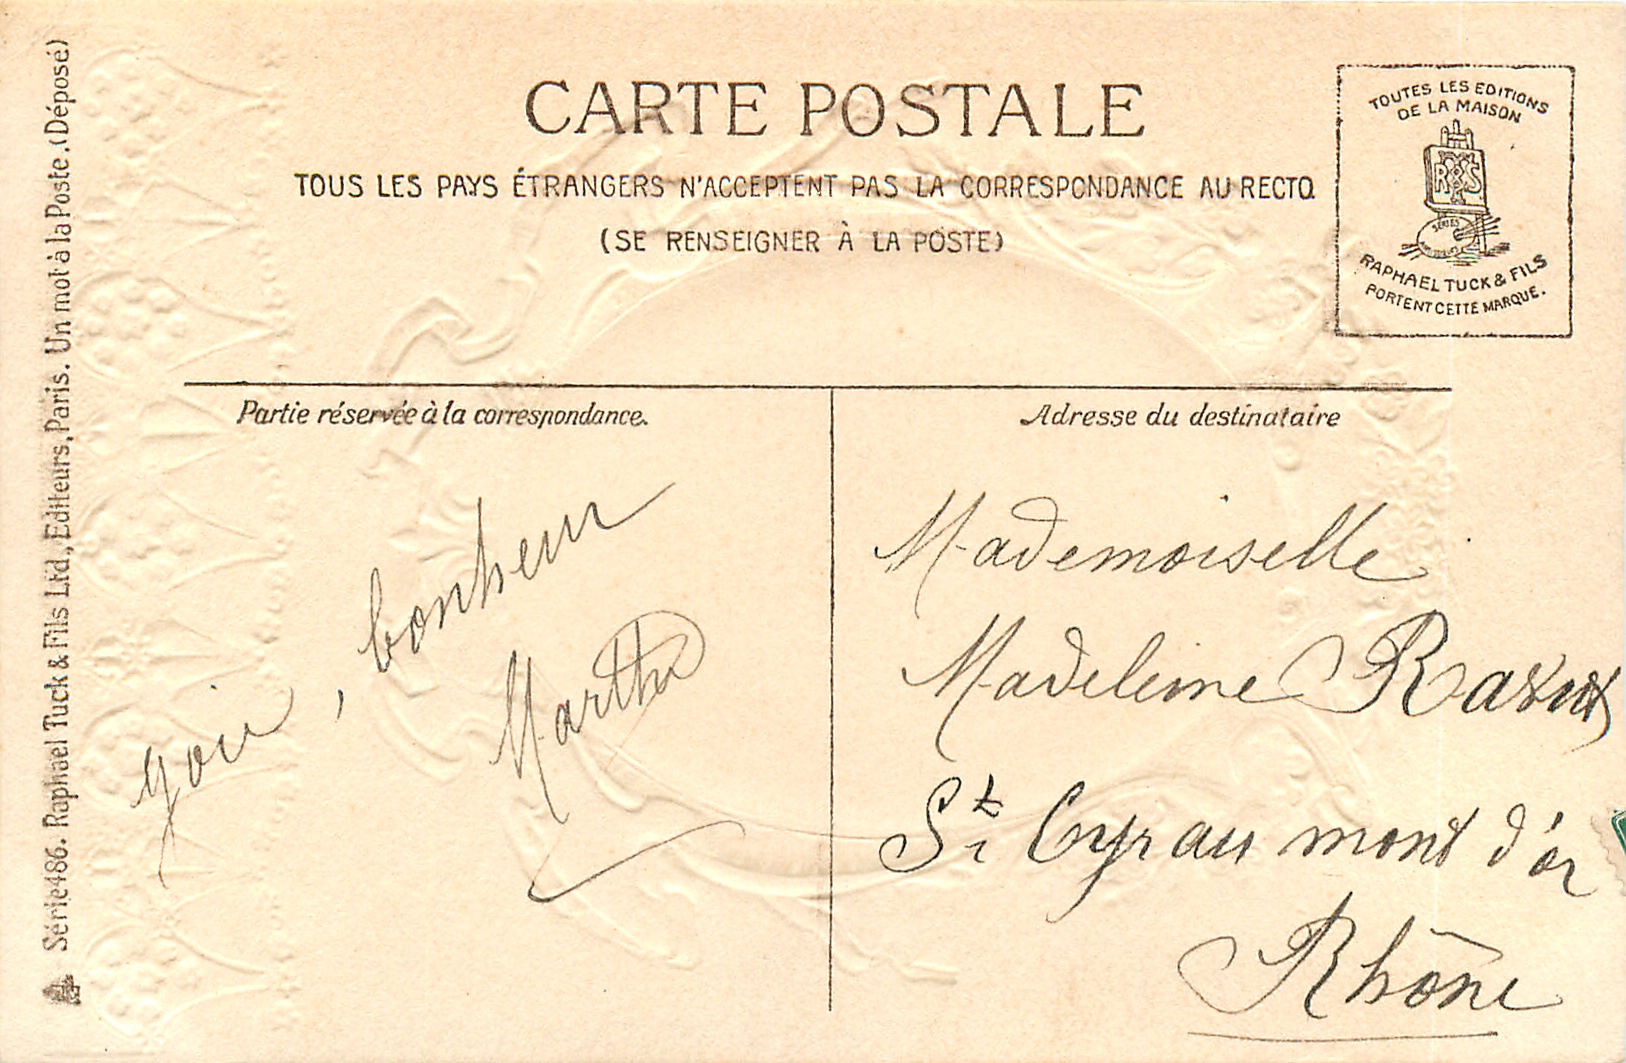 CARTE POSTALE
TOUS LES PAYS ÉTRANGERS N'ACCEPTENT PAS LA CORRESPONDANCE AU RECTO
(SE RENSEIGNER À LA POSTE)
TOUTES LES EDITIONS
DE LA MAISON
RAPHAEL TUCK & FILS
PORTENT CETTE MARQUE.
Série 486. Raphael Tuck & Fils Ltd, Editeurs, Paris. Un mot à la Poste. (Déposé)
Partie réservée à la correspondance.
Joie, bonheur
Martha
Adresse du destinataire
Mademoiselle
Madeleine
St Cyr au mont d'or
Rhône